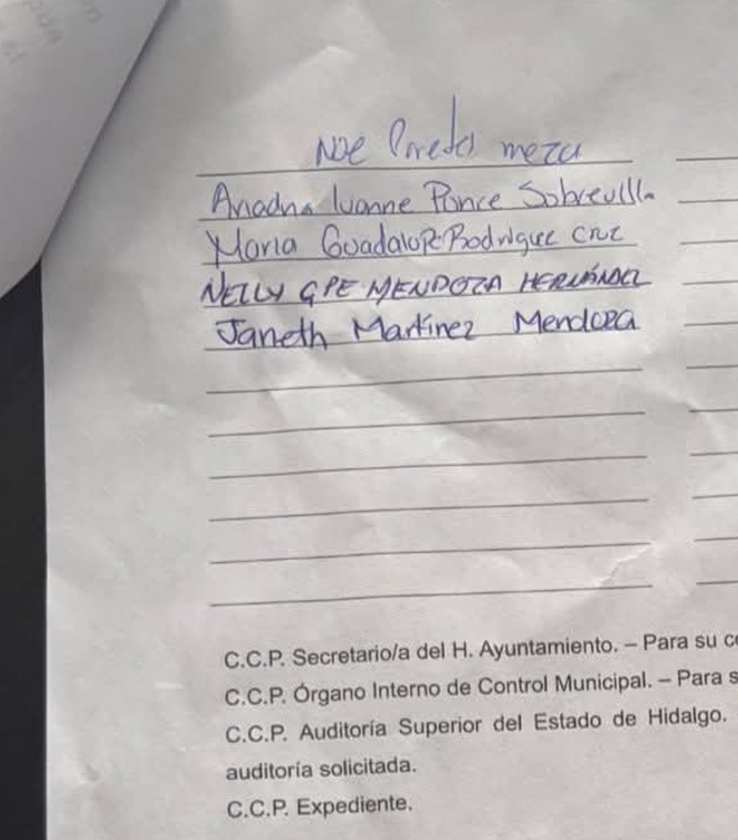 Noe Paredes meza
Ariadna Ivonne Ponce Sobrevilla
Maria Guadalupe Rodriguez Cruz
NELLY GPE MENDOZA HERNÁNDEZ
Janeth Martínez Mendoza
C.C.P. Secretario/a del H. Ayuntamiento. – Para su
C.C.P. Órgano Interno de Control Municipal. – Para
C.C.P. Auditoría Superior del Estado de Hidalgo.
auditoría solicitada.
C.C.P. Expediente.